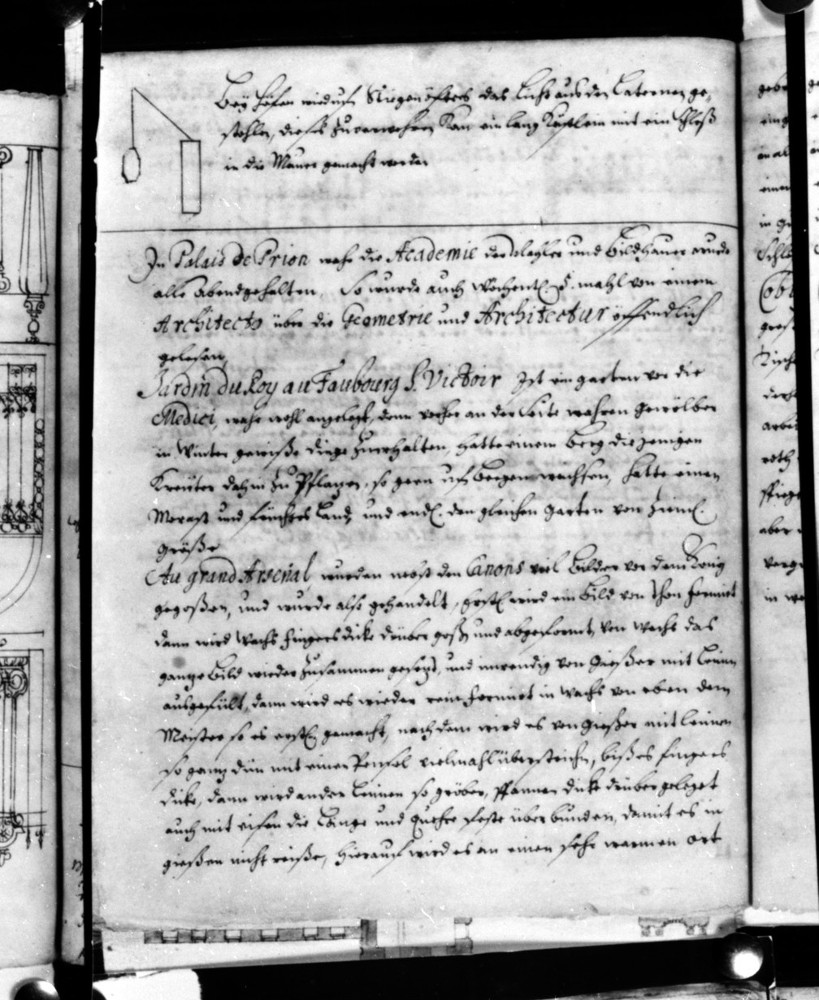 Bey Höfen wird uf Stiegen öfters das Licht aus den Laternen ge„
stohlen, dieses zuverwehren kan ein lang Küstlein mit ein Schloß
in die Mauer gemacht werden
In Palais de Prion wahr die Academie der Mahler und Bildhauer wurde
alle abend gehalten, So wurde auch Wöchentl. mahl von einem
Architecto über die Geometrie und Architectur öffendlich
gelesen,
Jardin du Roy au Faubourg S. Victoir Ist ein garten vor die
Medici, wahr wohl angelegt, denn vorher an der Seite wahren gewölber
in Winter gewisse dinge zuerhalten, hatte einen Berg die jenigen
Kreuter dahin zu Pflanzen, so gern uf Bergen wachsen, hatte einen
Morast und feuchtes Land und endl. den gleichen garten von ziml.
größe
Au grand Arsenal wurden nebst den Canons viel Bilder vor dem König
gegoßen, und wurde also gehandelt, Erstl. wird ein Bild von Thon formirt
dann wird Wachs fingers dicke drüber goßen und abgeformt, von Wachs das
gantze Bild wieder zusammen gesetzt, und inwendig von Gießer mit Leimen
ausgefült, dann wird es wieder rein formirt in Wachs von eben dem
Meister so es erstl. gemacht, nach dem wird es von Gießer mit leimen
so gantz dün mit einer Pensel vielmahl überstrichen, biß es fingers
dicke, dann wird ander Leimen so gröber, Pfannen dicke drüber geleget
auch mit eisen die Länge und quehre feste über bunden, damit es in
gießen nicht reiße, hierauf wird es an einen sehr warmen ort